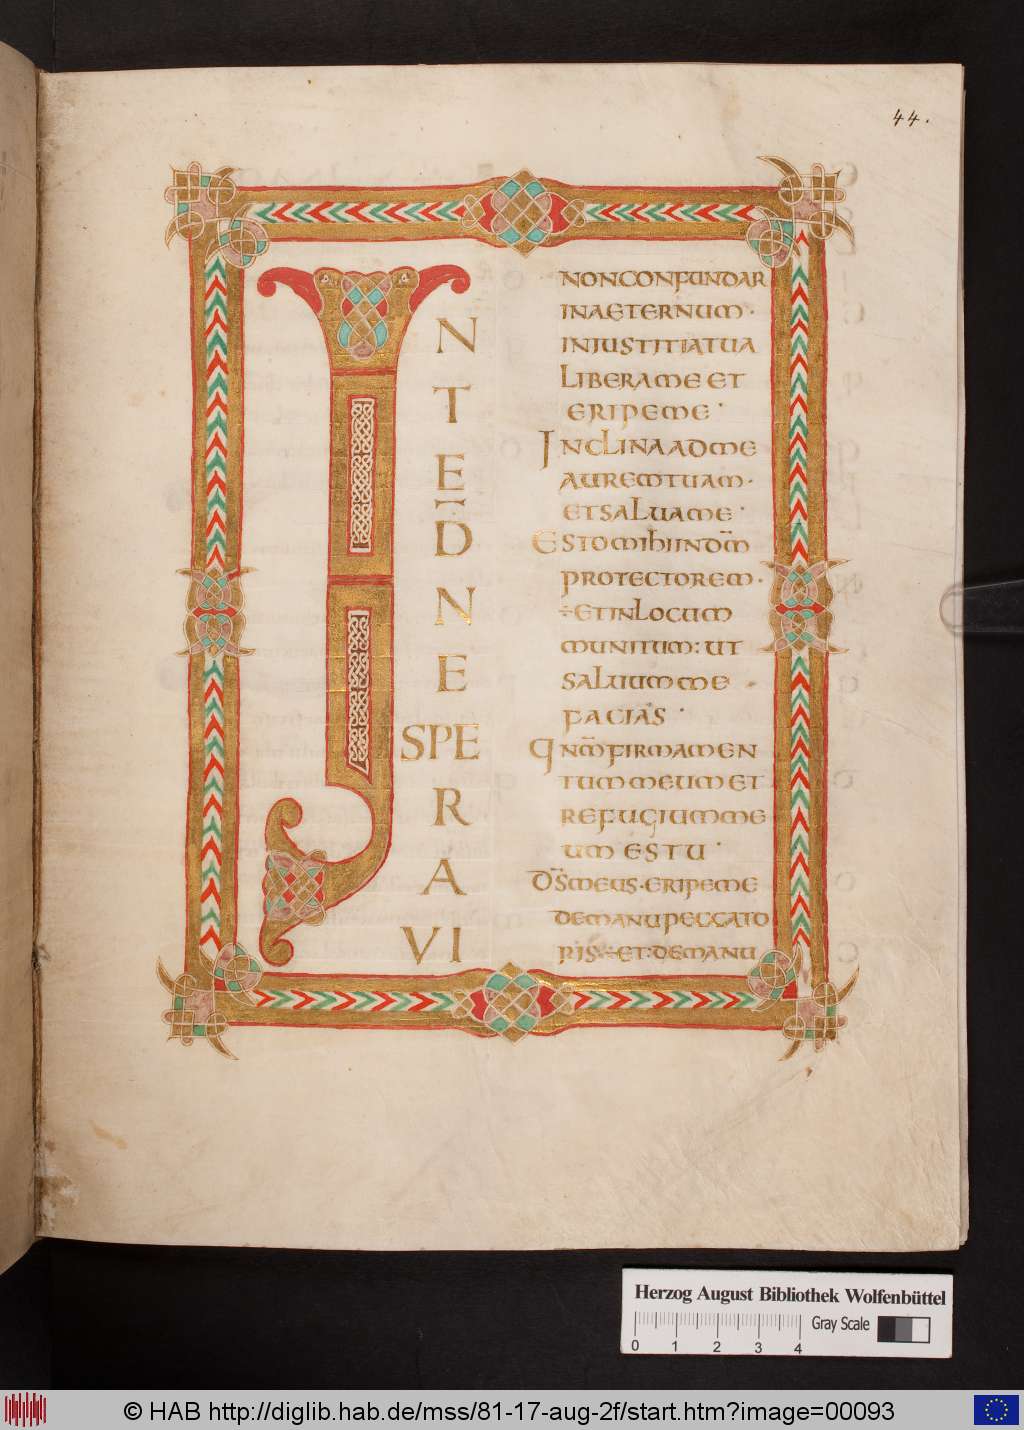 44.
I
N
T
E
D̅
N
E
SPE
R
A
VI
NONCONFUNDAR
INAETERNUM·
INIUSTITIATUA
LIBERAMEET
ERIPEME·
INCLINAADME
AUREMTUAM·
ETSALUAME·
ESTOMIHIINDM̅
PROTECTOREM·
÷ETINLOCUM
MUNITUM:UT
SALUUMME
FACIAS·
QNM̅FIRMAMEN
TUMMEUMET
REFUGIUMME
UMESTU·
DS̅MEUS·ERIPEME
DEMANUPECCATO
RIS·÷ET:DEMANU
Herzog August Bibliothek Wolfenbüttel
Gray Scale
0 1 2 3 4
© HAB http://diglib.hab.de/mss/81-17-aug-2f/start.htm?image=00093